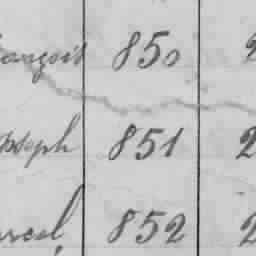 ançois 850 2
oseph 851 2
arcel 852 2